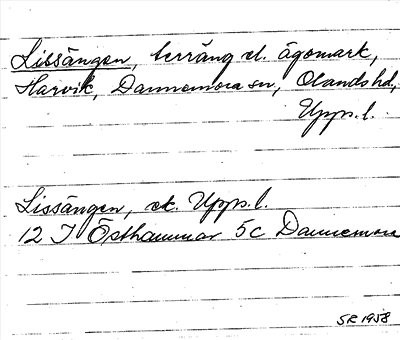 Lissängen, terräng el. ägomark,
Harvik, Dannemora sn, Olands hd,
Upps. l.
Lissängen, ek. Upps. l.
12 I Östhammar 5c Dannemora
SR 1958